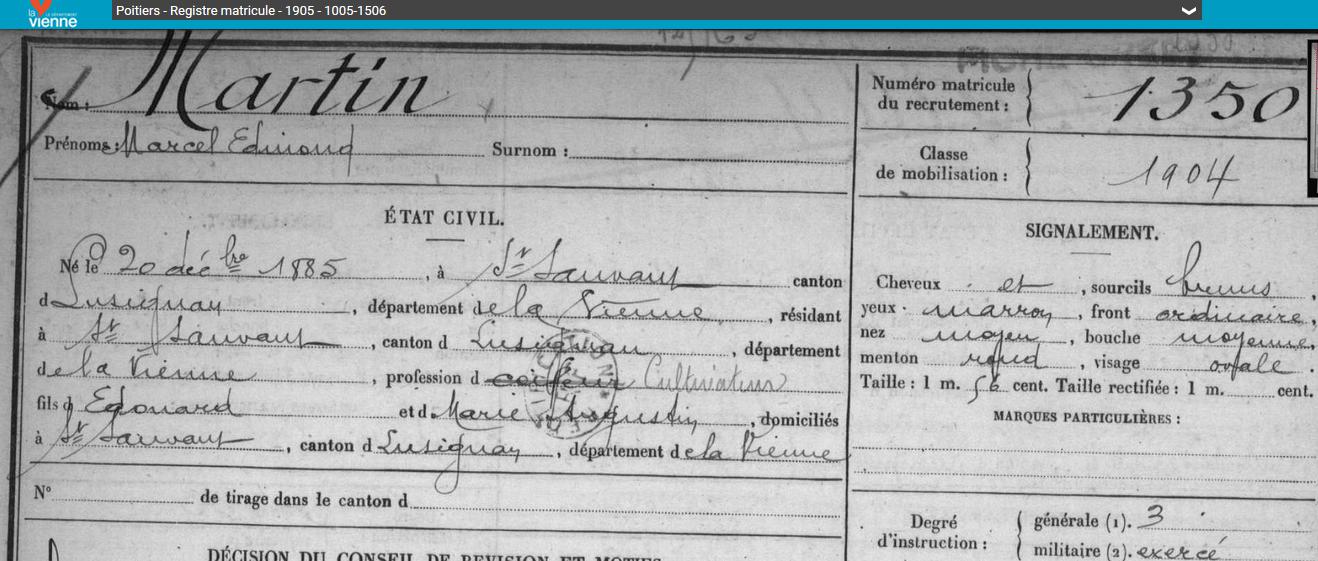 la vienne
Poitiers - Registre matricule - 1905 - 1005-1506
Nom : Martin
Prénoms : Marcel Edmond Surnom :
Numéro matricule du recrutement : 1350
Classe de mobilisation : 1904
ÉTAT CIVIL.
Né le 20 décbre 1885, à St Sauvant canton
d Lusignan, département de la Vienne, résidant
à St Sauvant, canton d Lusignan, département
de la Vienne, profession d coiffeur Cultivateur
fils d Edouard et d Marie Augustin, domiciliés
à St Sauvant, canton d Lusignan, département de la Vienne
N° de tirage dans le canton d
DÉCISION DU CONSEIL DE REVISION ET MOTIFS
SIGNALEMENT.
Cheveux et, sourcils bruns,
yeux marron, front ordinaire,
nez moyen, bouche moyenne,
menton rond, visage ovale.
Taille : 1 m. 56 cent. Taille rectifiée : 1 m. cent.
MARQUES PARTICULIÈRES :
Degré d'instruction : générale (1). 3
militaire (2). exercé